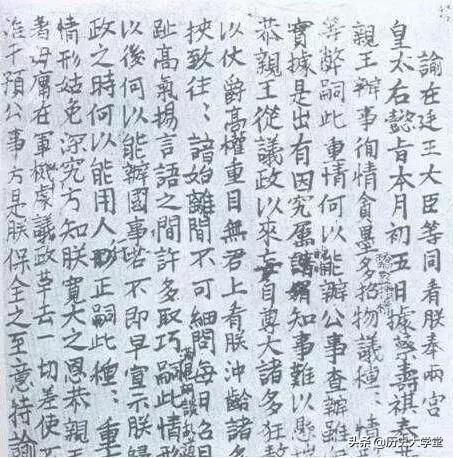 諭在廷王大臣等同看朕奉兩宮
皇太后懿旨本月初五日據蔡壽祺奏
親王辦事徇情貪墨多招物議種：情
等弊嗣此重情何以能辦公事查辦雖
實據是出有因究屬知事難以懸
恭親王從議政以來妄自尊大諸多狂敖
以仗爵高權重目無君上看朕沖齡諸
挾致往：諳始離間不可細問每日召見
趾高氣揚言語之間許多取巧滿口胡談亂道嗣此情形
以後何以能辦國事若不即早宣示朕歸
政之時何以能用人行正嗣此種：重
情形姑免深究方知朕寬大之恩恭親王
著毋庸在軍機處議政革去一切差使不
准干預公事方是朕保全之至意特諭
头条 @历史大学堂